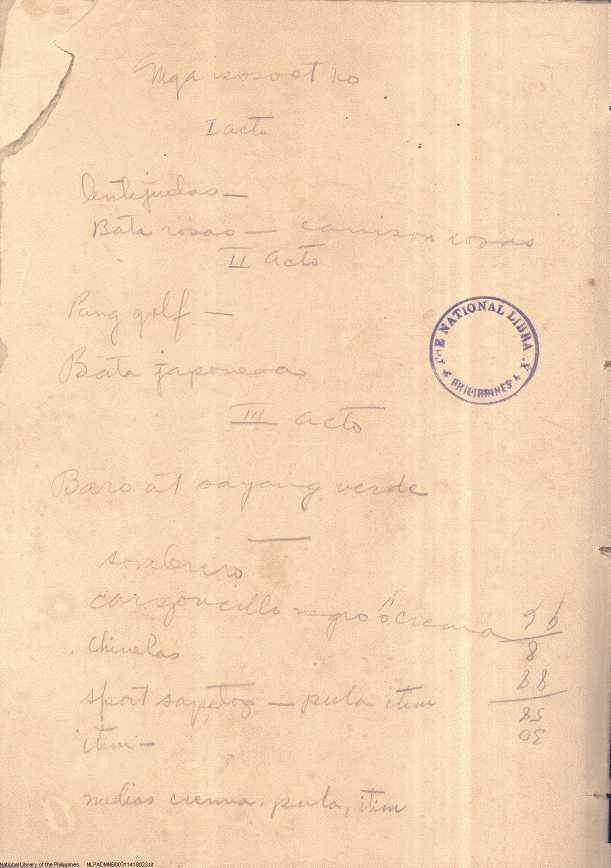 Mga isosoot ko
I acto
lentejuelas —
Bata rosas — camison rosas
II Acto
Pang golf —
Bata japonesa
III acto
Baro at sayang verde
sombrero
carzoncillo negro ó crema
chinelas
sport sapatos — pula itim
itim —
medias crema. pula, itim
THE NATIONAL LIBRARY
PHILIPPINES
National Library of the Philippines